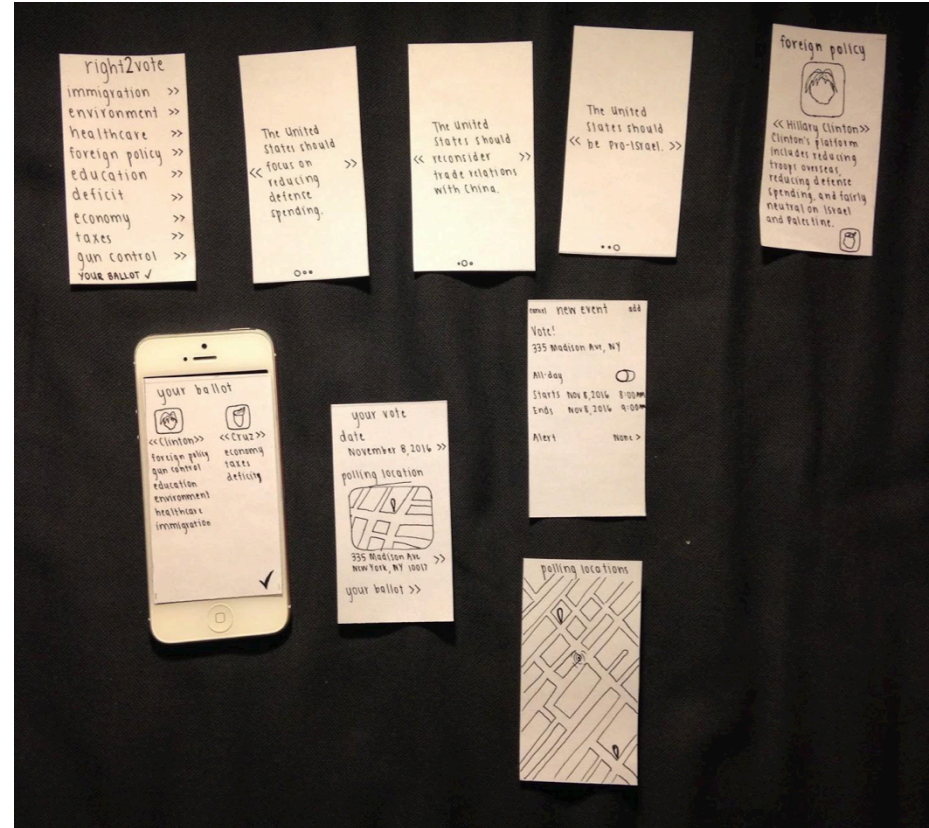 right2vote
immigration >>
environment >>
healthcare >>
foreign policy >>
education >>
deficit >>
economy >>
taxes >>
gun control >>
YOUR BALLOT ✓
The United
States should
<< focus on >>
reducing
defence
spending.
The United
States should
<< reconsider >>
trade relations
with China.
The United
States should
<< be Pro-Israel. >>
foreign policy
<< Hillary Clinton >>
Clinton's platform
includes reducing
troops overseas,
reducing defense
spending, and fairly
neutral on Israel
and Palestine.
your ballot
<<Clinton>>
foreign policy
gun control
education
environment
healthcare
immigration
<<Cruz>>
economy
taxes
deficity
✓
your vote
date
November 8, 2016 >>
polling location
335 Madison Ave >>
New York, NY 10017
your ballot >>
cancel new event add
Vote!
335 Madison Ave, NY
All-day
Starts Nov 8, 2016 8:00am
Ends Nov 8, 2016 9:00am
Alert None >
polling locations